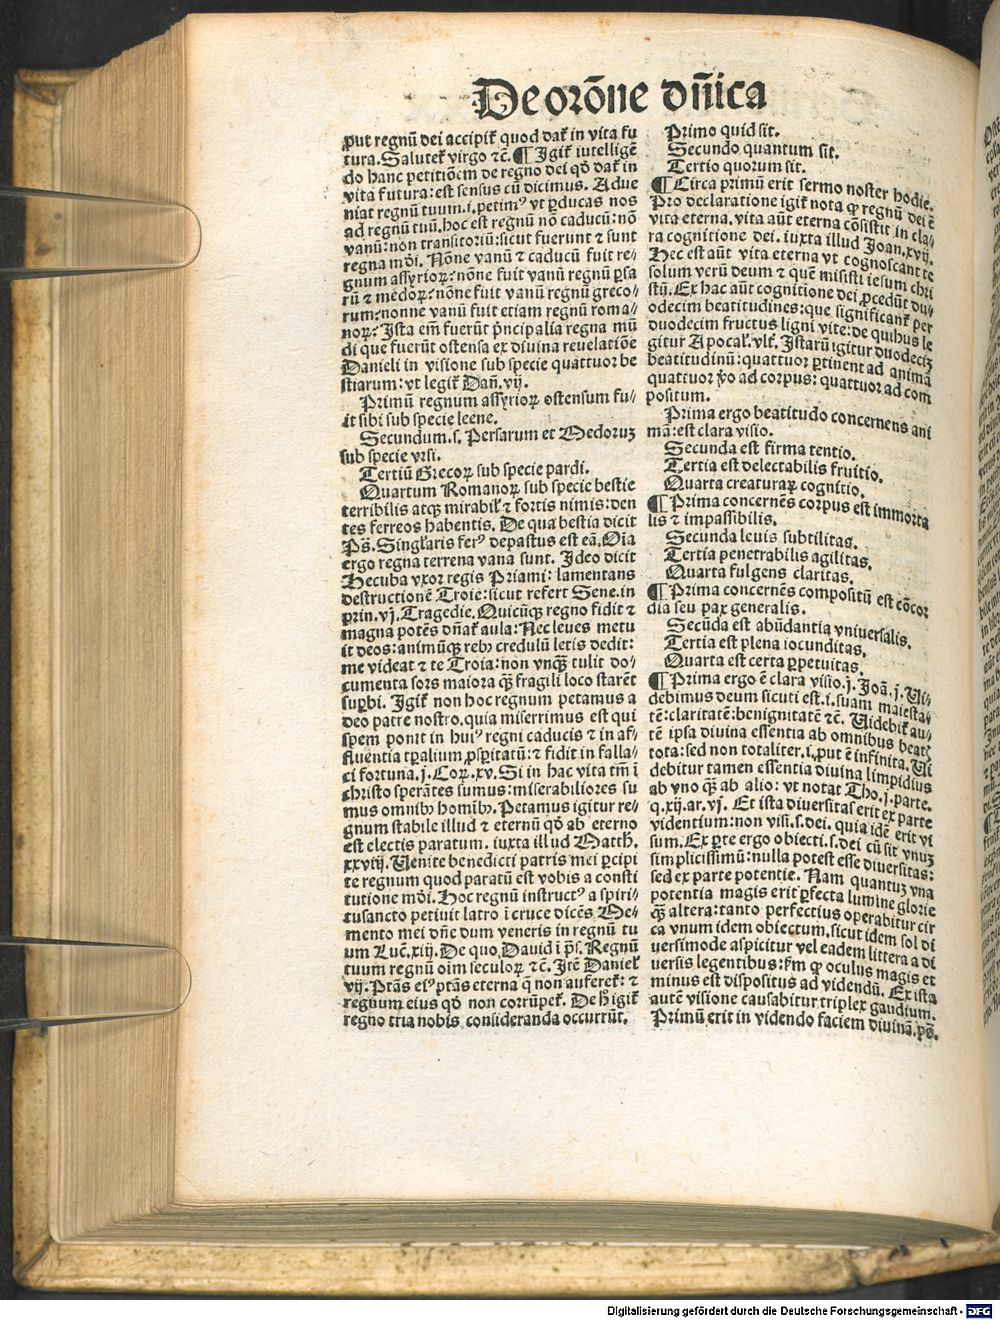 De orōne dn̄ica
ꝓut regnū dei accipit̄ quod dat̄ in vita fu
tura. Salutet̄ virgo ⁊c̄. ¶ Igit̄ iutelligē
do hanc petitiōem de regno dei qð dat̄ in
vita futura: est sensus cū dicimus. Adue
niat regnū tuum .i. petimꝰ vt ꝑducas nos
ad regnū tuū, hoc est regnū nō caducū: nō
vanū: non transitoriū: sicut fuerunt ⁊ sunt
regna mōi. Nōne vanū ⁊ caducū fuit re⸗
gnum assyrioꝝ: nōne fuit vanū regnū ꝑsa
rū ⁊ medoꝝ: nōne fuit vanū regnū greco⸗
rum: nonne vanū fuit etiam regnū roma⸗
noꝝ: Ista em̄ fuerūt pn̄cipalia regna mū
di que fuerūt ostensa ex diuina reuelatiōe
Danieli in visione sub specie quattuor be
stiarum: vt legit̄ Dan̄. vij.
Primū regnum assyrioꝝ ostensum fu⸗
it sibi sub specie leene.
Secundum .s. Persarum et Medoruꝫ
sub specie vrsi.
Tertiū Grecoꝝ sub specie pardi.
Quartum Romanoꝝ sub specie bestie
terribilis atqꝫ mirabil̄ ⁊ fortis nimis: den
tes ferreos habentis. De qua bestia dicit
Ps̄. Singl̄aris ferꝰ depastus est eā. Oīa
ergo regna terrena vana sunt. Ideo dicit
Hecuba vxor regis Priami: lamentans
destructionē Troie: sicut refert Sene. in
prin. vj. Tragedie. Quicūqꝫ regno fidit ⁊
magna potēs dn̄at̄ aula: Nec leues metu
it deos: animūqꝫ rebꝰ credulū letis dedit:
me videat ⁊ te Troia: non vnqꝫ̄ tulit do⸗
cumenta sors maiora qꝫ̄ fragili loco starēt
suꝑbi. Igit̄ non hoc regnum petamus a
deo patre nostro, quia miserrimus est qui
spem ponit in huiꝰ regni caducis ⁊ in af⸗
fluentia tꝑalium ꝓsꝑitatū: ⁊ fidit in falla⸗
ci fortuna. j. Coꝝ. xv. Si in hac vita tm̄ i
christo sperātes sumus: miserabiliores su
mus omnibꝰ homībꝰ. Petamus igitur re⸗
gnum stabile illud ⁊ eternū qð ab eterno
est electis paratum. iuxta illud Matth̄.
xxviij. Venite benedicti patris mei ꝑcipi
te regnum quod paratū est vobis a consti
tutione mōi. Hoc regnū instructꝰ a spiri⸗
tusancto petiuit latro i cruce dicēs. Me⸗
mento mei dn̄e dum veneris in regnū tu
um Luc̄. xiij. De quo Dauid i ps̄. Regnū
tuum regnū oīm seculoꝝ ⁊c̄. Itē Daniel̄
vij. Ptās eiꝰ ptās eterna q̄ non auferet̄: ⁊
regnum eius qð non corrūpet̄. De hͦ igit̄
regno tria nobis consideranda occurrūt.
Primo quid sit.
Secundo quantum sit.
Tertio quorum sit.
¶ Circa primū erit sermo noster hodie.
Pro declaratione igit̄ nota ꝙ regnū dei ē
vita eterna. vita aūt eterna cōsistit in cla⸗
ra cognitione dei. iuxta illud Joan. xvij.
Hec est aūt vita eterna vt cognoscant te
solum verū deum ⁊ quē misisti iesum chri
stū. Ex hac aūt cognitione dei ꝓcedūt du⸗
odecim beatitudines: que significant̄ per
duodecim fructus ligni vite: de quibus le
gitur Apocal̄. vlt̄. Istarū igitur duodecīꝫ
beatitudinū: quattuor ꝑtinent ad animā
quattuor ꝟo ad corpus: quattuor ad com
positum.
Prima ergo beatitudo concernens ani
mā: est clara visio.
Secunda est firma tentio.
Tertia est delectabilis fruitio.
Quarta creaturaꝝ cognitio.
¶ Prima concernēs corpus est immorta
lis ⁊ impassibilis.
Secunda leuis subtilitas.
Tertia penetrabilis agilitas.
Quarta fulgens claritas.
¶ Prima concernēs compositū est cōcor
dia seu pax generalis.
Secūda est abūdantia vniuersalis.
Tertia est plena iocunditas.
Quarta est certa ꝑpetuitas.
¶ Prima ergo ē clara visio. j. Joā. j. Vi⸗
debimus deum sicuti est .i. suam maiesta⸗
tē: claritatē: benignitatē ⁊c̄. Videbit̄ au⸗
tē ipsa diuina essentia ab omnibus beatꝭ
tota: sed non totaliter .i. ꝓut ē infinita. Vi
debitur tamen essentia diuina limpidius
ab vno qꝫ̄ ab alio: vt notat Tho. j. parte.
q. xij. ar. vj. Et ista diuersitas erit ex parte
videntium: non visi .s. dei. quia idē erit vi
sum. Ex ꝑte ergo obiecti .s. dei cū sit vnuꝫ
simplicissimū: nulla potest esse diuersitas:
sed ex parte potentie. Nam quantuꝫ vna
potentia magis erit ꝑfecta lumine glorie
qꝫ̄ altera: tanto perfectius operabitur cir
ca vnum idem obiectum. sicut idem sol di
uersimode aspicitur vel eadem littera a di
uersis legentibus: ẜm ꝙ oculus magis et
minus est dispositus ad videndū. Ex ista
autē visione causabitur triplex gaudium.
Primū erit in videndo faciem diuinā. ps̄.
Digitalisierung gefördert durch die Deutsche Forschungsgemeinschaft - DFG